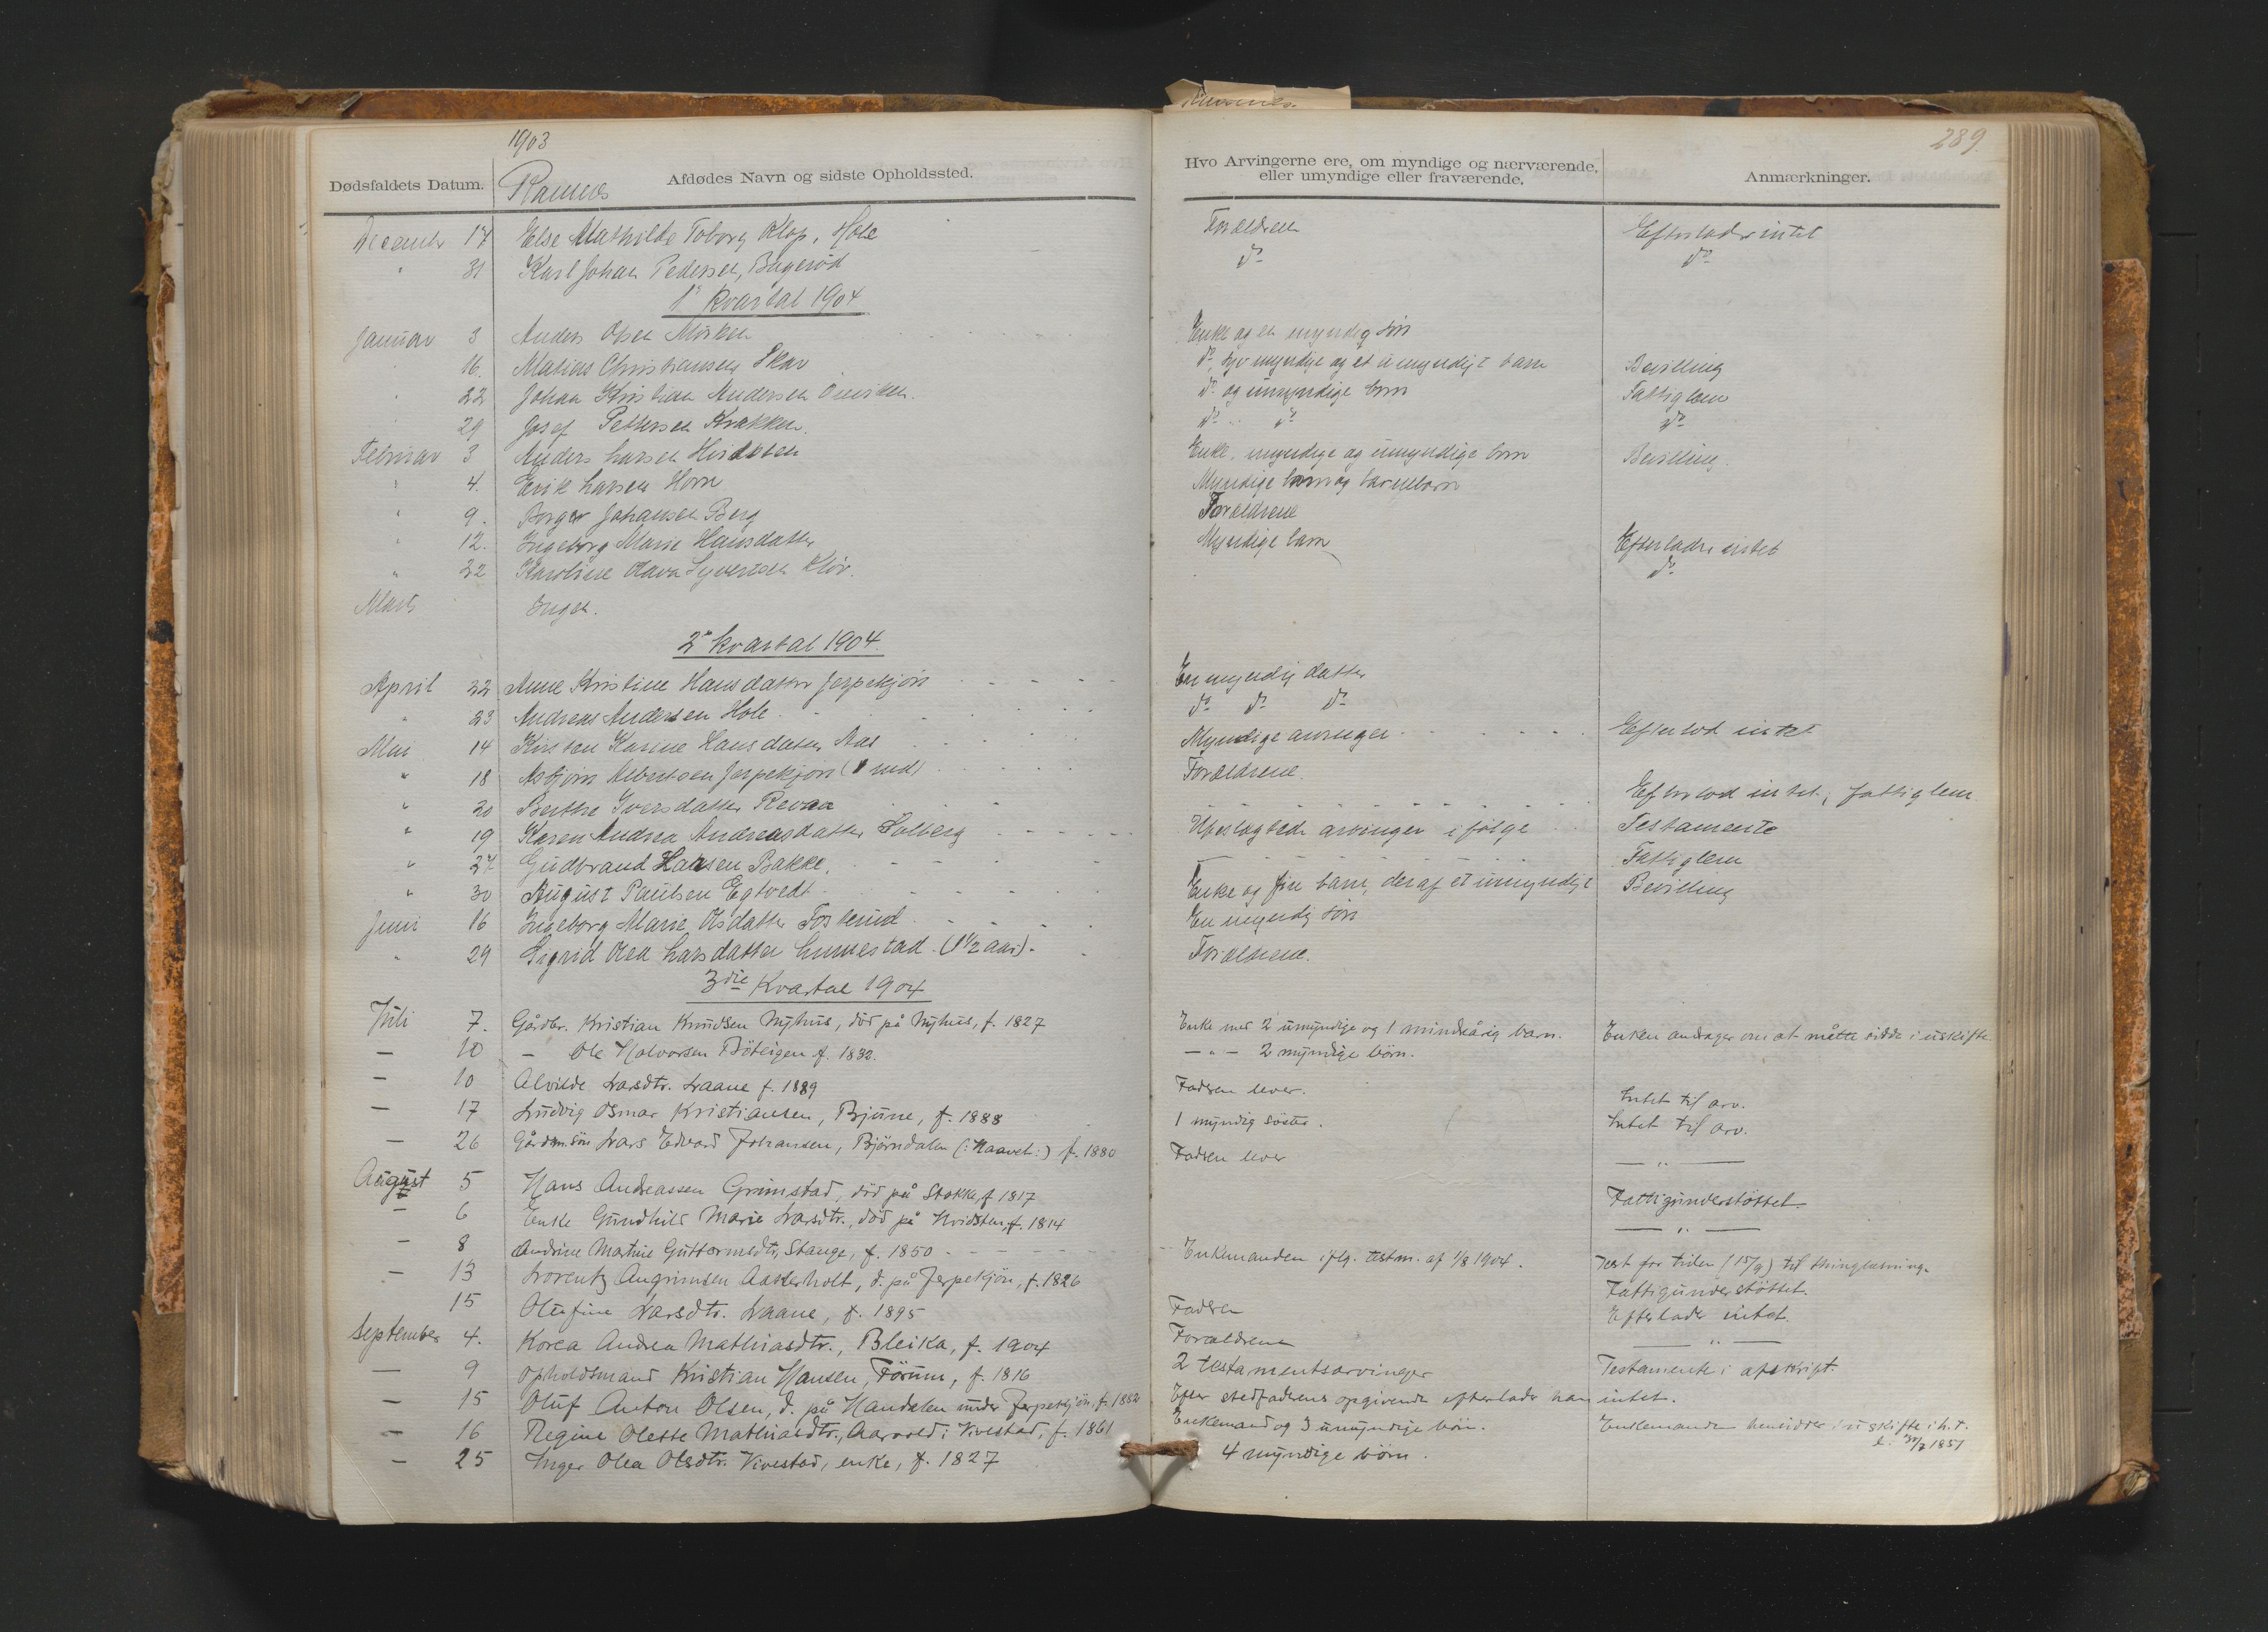 Ramnes
1903
289
Dødsfaldets Datum.
Ramnes
Afdødes Navn og sidste Opholdssted.
Hvo Arvingerne ere, om myndige og nærværende, eller umyndige eller fraværende.
Anmærkninger.
December 17 Else Mathilde Toborg Klop, Hole Forældrene Efterlader intet
" 31 Karl Johan Pedersen, Bugerød do do
1ste kvartal 1904
Januar 3 Anders Olsen Mörken Enke og en myndig sön
" 16. Matias Christiansen Skar do, syv myndige og et umyndigt barn Bevilling
" 22 Johan Kristian Andersen do og umyndige börn Fattiglem
" 29 Josef Pettersen Krakken. do do do
Februar 3 Anders Larsen Enke, myndige og umyndige börn Bevilling.
" 4. Erik Larsen Horn Myndige börn og barnebörn
" 9. Borger Johansen Berg Forældrene
" 12. Ingeborg Marie Hansdatter Myndige barn Efterlader intet
" 22 Karoline Olava Syversen Klöv. do
Marts Ingen.
2det kvartal 1904.
April 22 Anne Kristine Hansdatter Jerpekjön En myndig datter
" 23 Andreas Andersen Hole do do do
Mai 14 Kirsten Karine Hansdatter Aas Myndige arvinger Efterlod intet
" 18 Asbjörn Albertsen Jerpekjön Forældrene.
" 20 Berthe Iversdatter Revaa Efterlod intet, fattiglem
" 19 Karen Andrea Andreasdatter Solberg Ubeslægtede arvinger ifölge Testamente
" 27 Gudbrand Hansen Bakke. Fattiglem
" 30 August Paulsen Egtvedt Enke og fire barn, deraf et umyndigt Bevilling
Juni 16 Ingeborg Marie Olsdatter Fosserud En myndig sön
" 29 Sigrid Olea Larsdatter Linnestad (1 1/2 aar). Forældrene.
3die Kvartal 1904
Juli 7. Gårdbr. Kristian Knudsen Nyhus, död på Nyhus, f. 1827 Enke med 2 umyndige og 1 mindreårig barn. Enken andrager om at måtte sidde i uskifte
— 10 — Ole Halvorsen Böteigen f. 1832. — " — 2 myndige börn.
— 10 Alvilde Larsdtr. Laane f. 1889 Faderen lever. Intet til arv.
— 17 Ludvig Osmar Kristiansen, Bjune, f. 1888 1 myndig söster. Intet til arv.
— 26 Gårdm.sön Lars Edvard Johansen, Björndalen (: Haavet :) f. 1880 Faderen lever — " —
August 5 Hans Andreassen Grimstad, död på Stokke, f 1817 Fattigunderstöttet.
— 6 Enke Gundhild Marie Larsdtr., död på Hvidsten, f. 1814 — " —
— 8 Andrine Martine Guttormsdtr, Stange, f. 1850 Enkemanden iflg. testm. af 1/8 1904. Test for tiden (15/9) til thinglæsning.
— 13 Lorentz Angrimsen Aakerholt, d. på Jerpekjön, f. 1826 Fattigunderstöttet.
15 Olufine Larsdtr. Laane, f. 1895 Faderen Efterlader intet.
September 4. Korea Andrea Mathiasdtr., Bleika, f. 1904 Forældrene — " —
— 9 Opholdsmand Kristian Hansen, Förum, f. 1816 2 testamentsarvinger Testamente i afskript.
— 15 Oluf Anton Olsen, d. på Haudalen under Jerpekjön, f. 1882 Efter stedfaderens opgivende efterlader han intet.
— 16 Regine Olette Mathiasdtr., Aarvold i Vivestad, f. 1861 Enkemand og 3 umyndige börn. Enkemanden hensidder i uskifte i h. t. l. 30/7 1851
— 25 Inger Olea Olsdtr. Vivestad, enke, f. 1827 4 myndige börn.